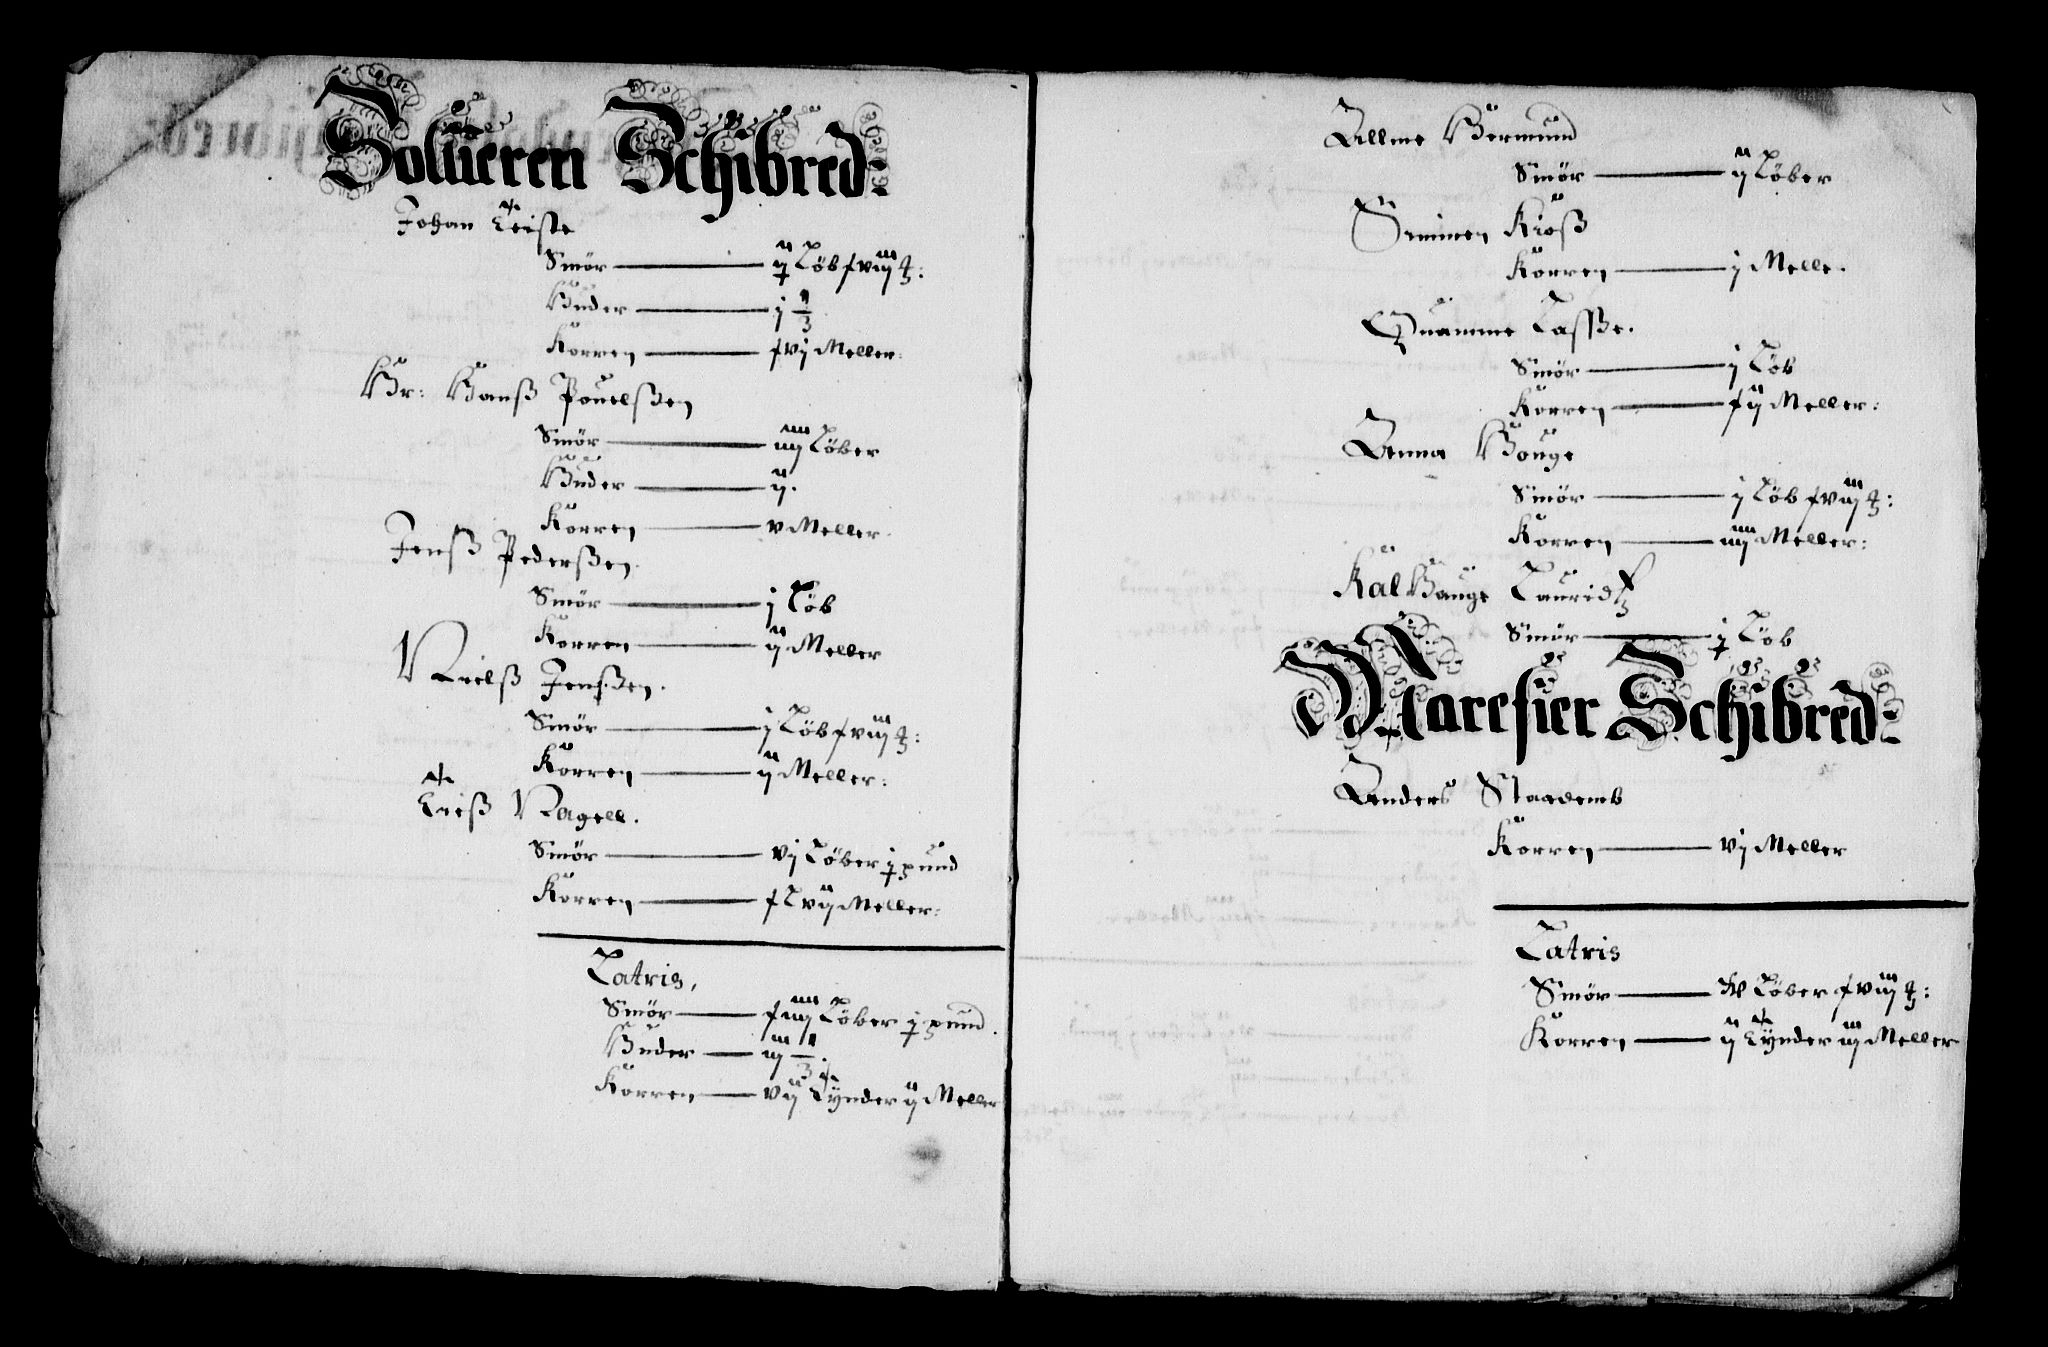 Solueren Schibred:
Johan Teiste
Smör — ij Löb j viij ℔:
Huder — j 1/3
Korren — j vj Meller:
Hr: Hanß Pouelßen
Smör — iiij Löber
Huder — ij.
Korren — v Meller.
Jenß Pederßen.
Smör — j Löb
Korren — ij Meller
Nielß Jenßen.
Smör — j Löb j viij ℔:
Korren — ij Meller:
Friß Nagell.
Smör — vj Löber j pund
Korren — j L vij Meller:
Latris,
Smör — j iiij Löber j pund.
Huder — iij 1/3.
Korren — vij Tynder ij Meller
Allme Germund
Smör — ij Löber
Kröß
Korren — j Melle.
Quamme Lasße.
Smör — j Löb
Korren — j ij Meller:
Anna Houge
Smör — j Löb j viij ℔:
Korren — iiij Meller:
Kalhauge Lauridtz
Smör — j Löb
Maresier Schibred:
Anders Staademb
Korren — vj Meller
Latris
Smör — Löber j viij ℔:
Korren — ij Tynder iij Meller